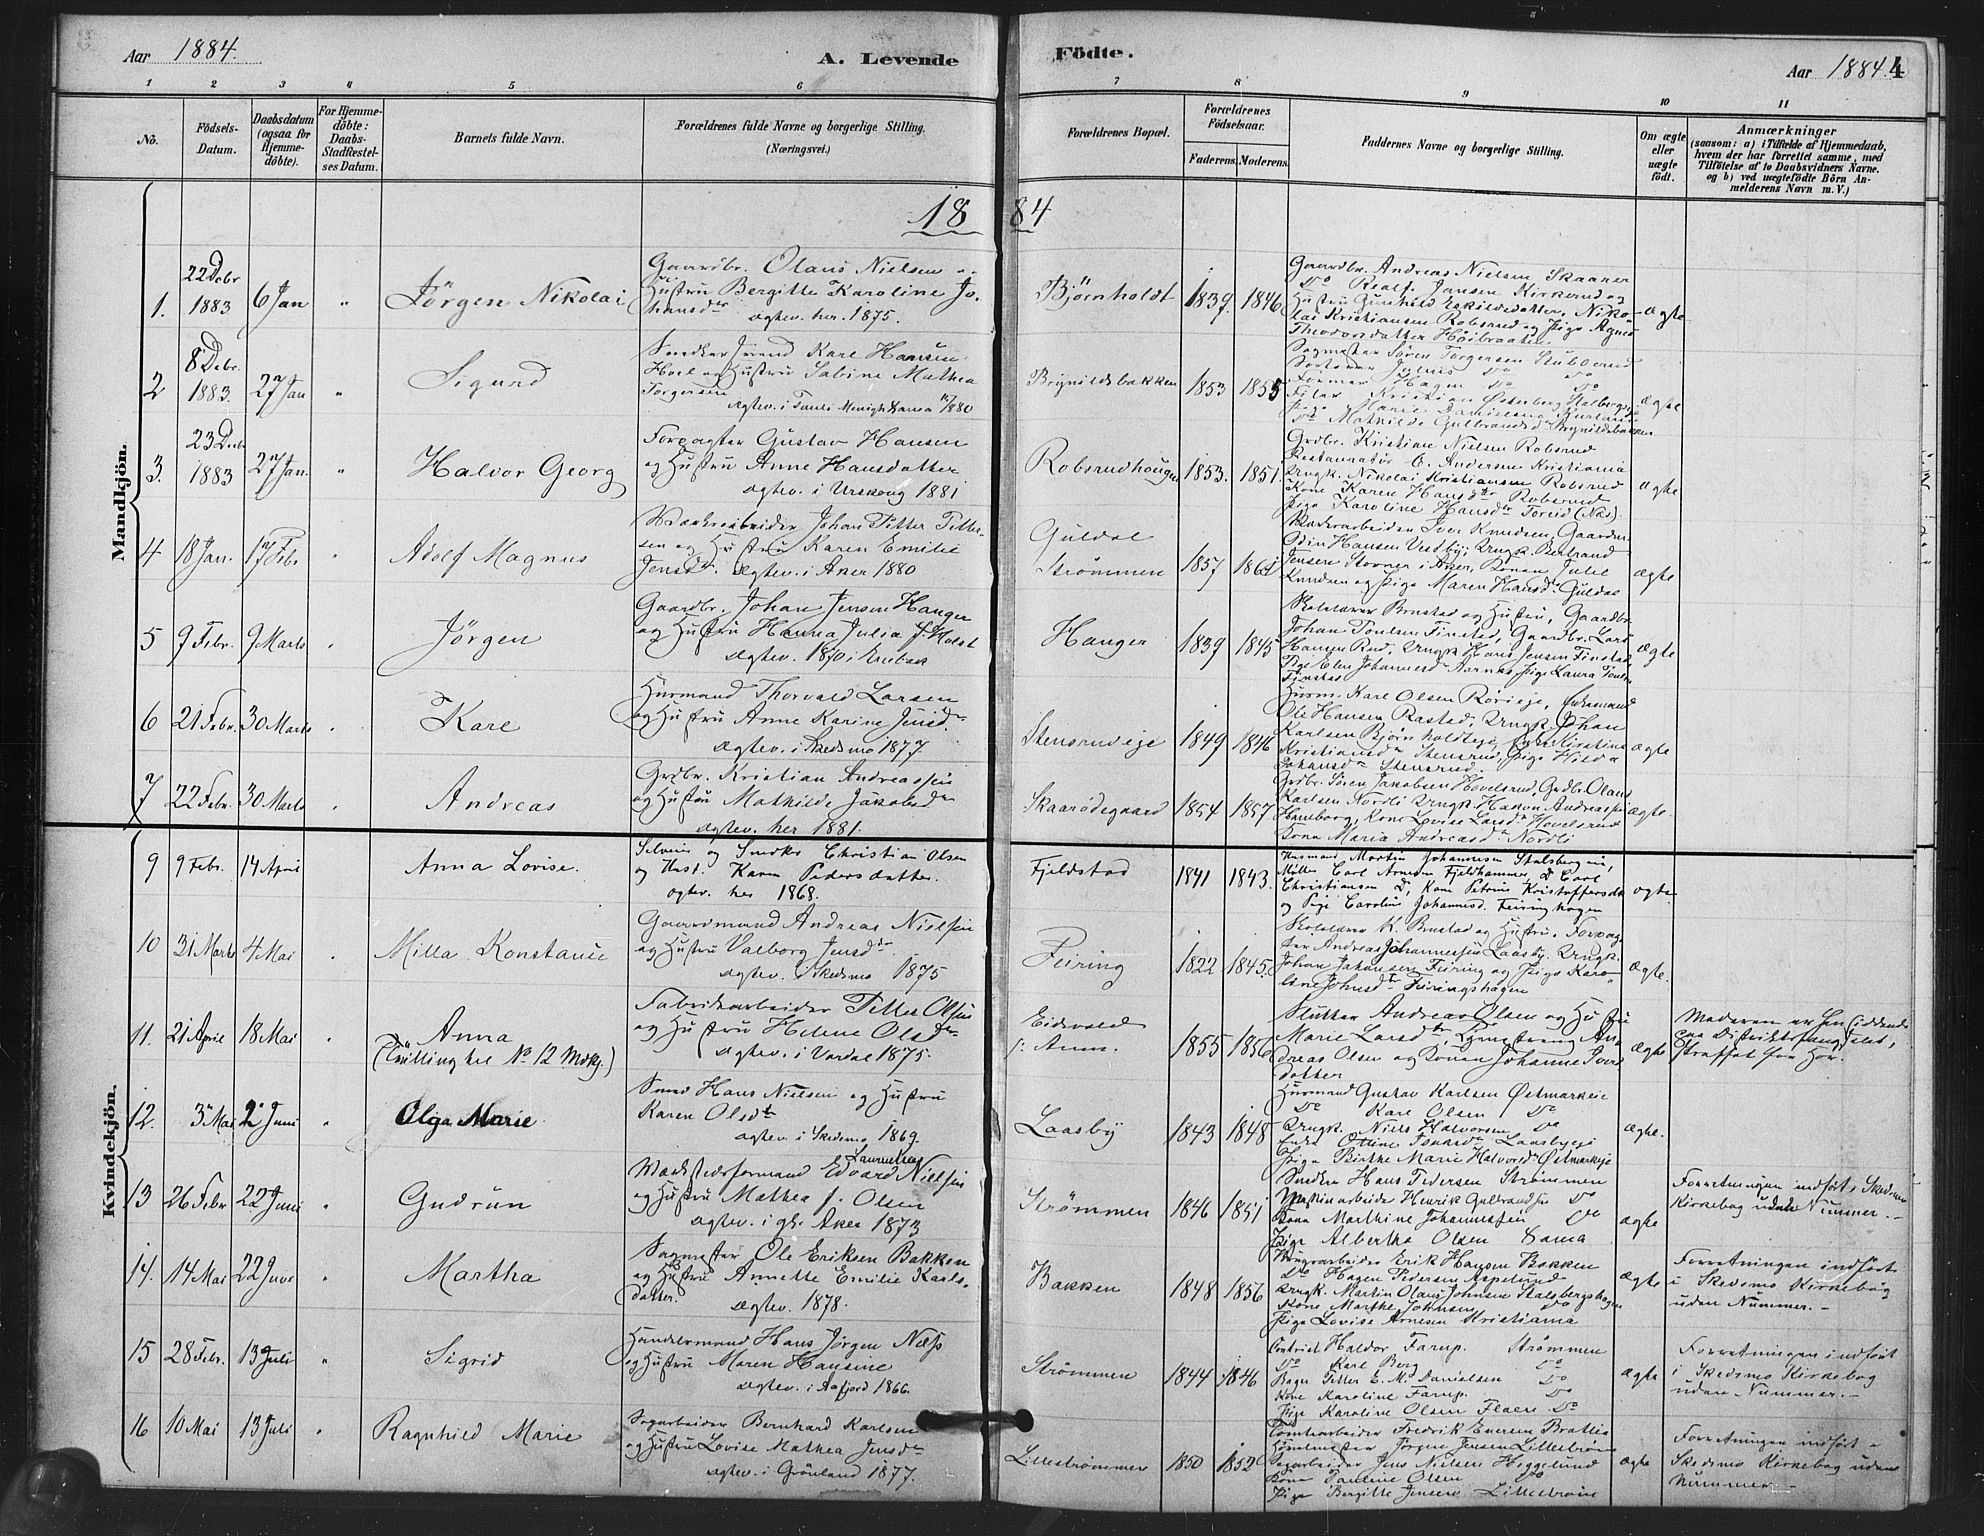 Aar 1884. A. Levende Födte. Aar 1884. 4
1 2 3 4 5 6 7 8 9 10 11
No.
Födsels-Datum.
Daabsdatum (ogsaa for Hjemmedöbte).
For Hjemmedöbte: Daabs-Stadfæstelses Datum.
Barnets fulde Navn.
Forældrenes fulde Navne og borgerlige Stilling.
(Næringsvei.)
Forældrenes Bopæl.
Forældrenes Födselsaar.
Faderens. Moderens.
Faddernes Navne og borgerlige Stilling.
Om ægte eller uægte födt.
Anmærkninger
(saasom: a) i Tilfælde af Hjemmedaab,
hvem der har forrettet samme, med
Tilföielse af to Daabsvidners Navne.
og b) ved uægtefödte Börn Anmelderens Navn m. V.)
1884
Mandkjön.
1. 22 Debr 1883 6 Jan " Jörgen Nikolai
Gaardbr. Olaus Nielsen og
Hustru Bergitte Karoline Johansdr
ægtev. her. 1875.
Bjørnholdt 1839. 1846
Gaardbr. Andreas Nielsen Skaarer
Do Realf Jansen Kirkerud og
Hustru Gunhild Eskildsdatter, Nikolai
Kristiansen Robsrud og Pige Agnes
Theodorsdatter Höibraaten
ægte
2 8 Debr. 1883. 27 Jan " Sigurd
Snedkersvend Karl Hansen
Hoel og Hustru Sabine Mathea
Torgersen
Brynildsbakken 1853 1855
Sagmester Søren Torgersen Stubberud
Do Mathilde Gulbrandsd Brynildsbakken
ægte
3. 23 Debr 1883 27 Jan. " Halvor Georg
Forpagter Gustav Hansen
og Hustru Anne Hansdatter
ægtev. i Urskoug 1881
Robsrudhougen 1853. 1851.
Grdbr. Kristian Nielsen Robsrud
Restauratør C. Andersen Kristiania
Ungk. Nikolai Kristiansen Robsrud
Kone Karen Hansdtr Robsrud
Pige Karoline Hansdtr Toreid (Næs)
ægte
4 18 Jan. 17 Febr " Adolf Magnus
Værksarbeider Johan Petter Pettersen
og Hustru Karen Emilie
Jensdr. ægtev. i Aker 1880
Guldal
Strømmen 1857
Iver Knudsen, Gaardm.
Odin Hansen Vestby, Ungk. Bertrand
Jensen Stovner i Aker, Konen Julie
Knudsen og Pige Maren Hansdr Guldal
ægte
5 9 Febr. 9 Marts " Jörgen
Gaardbr. Johan Jensen Hauger
og Hustru Hanna Julia f. Holst
ægtev. 1870 i Enebak
Hauger 1839 1845
Skolelærer Brustad og Hustru, Gaardbr.
Johan Poulsen Finstad, Gaardbr. Lars
Hansen Rud, Ungk Hans Jensen Finstad,
Pige Elen Johannesdr Aarnæs, Pige Laura Poulsen
Finstad
ægte
6 21 Febr. 30 Marts " Kare
Husmand Thorvald Larsen
og Hustru Anne Karine Jensdr
ægtev. i Skedsmo 1877
Stensrudeje 1849 1846
Husm. Karl Olsen Röreje,
Ole Hansen Rasted, Ungk. Johan
Karlsen Bjørnholdteje, Enke Kirstine
Kristiansdr Stensrud, Pige Hilda
Johansdr Stensrud.
ægte
7 22 Febr. 30 Marts " Andreas
Grdbr. Kristian Andreassen
og Hustru Mathilde Jakobsdr
ægtev. her 1881.
Skaarødegaard 1854 1857
Grdbr. Sören Jakobsen Hovelsrud, Grdbr. Olaus
Karlsen Nordli Ungk. Hakon Andreassen
Hamborg, Kone Lovise Larsdr Hovelsrud
Kona Maria Andreasdr Nordli
ægte.
Kvindekjön.
9 9 Febr. 14 April Anna Lovise.
Selveier og Snedker Christian Olsen
og Hust. Karen Pedersdatter.
ægtev. her 1868.
Fjeldstad 1841 1843.
Husmand Martin Johannesen Stalsbergeie,
Møller Carl Arnesen Fjeldhammer, D Carl
Christiansen D, Kone Petrine Kristoffersdtr
og Pige Caroline Johannesd. Feiringhagen
ægte
10 31 Marts 4 Mai " Milla Konstance
Gaardmand Andreas Nielsen
og Hustru Valborg Jensdr
ægtev. Skedsmo 1875
Feiring 1822 1845.
Skolelærer K. Brustad og Hustru, Forpagter
Andreas Johannessen Laasby, Ungk.
Johan Johansen Feiring og Pige Karoline
Johnsdtr Feiringshagen
ægte.
11. 21 April 18 Mai " Anna
(Tvilling hel No 12 Mdkj.)
Fabrikarbeider Petter Olsen
og Hustru Helene Olsdr
ægtev. i Vardal 1875.
Eidsvold
p: Anm. 1855 1856
Slutter Andreas Olsen og Hustru
Marie Larsdtr, Andreas
Olsen og Konen Johanne Iversdatter
ægte
Moderen er hensiddende
paa Distriktsfængslet,
straffet for Hor.
12. 3 Mai 2 Juni " Olga Marie
Smed Hans Nielsen og Hustru
Karen Olsdtr
ægtev. i Skedsmo 1869.
Laasby 1843 1848
Husmand Gustav Karlsen Østmarkeie
Do Karl Olsen Do
Ungk. Niels Halvorsen Do
Enke Olline Laasbyeje
Pige Birthe Marie Halvorsdr Østmarkeje
ægte.
13 26 Febr 22 Juni " Gudrun
Værkstedsformand Edvard Lauritsen Nielsen
og Hustru Mathea f. Olsen
ægtev. i gl. Aker 1873
Strømmen 1846 1851
Snedker Hans Pedersen Strømmen
Maskinarbeider Henrik Gulbrandsen Do
Kona Marthine Johannessen Do
Pige Albertha Olsen Sama
ægte
Forretningen indført i Skedsmo
Kirkebog uden Nummer.-
14. 14 Mai 22 Juni " Martha
Sagmester Ole Eriksen Bakken
og Hustru Annette Emilie Karlsdatter.
ægtev. 1878.
Bakken 1848 1856
Brugsarbeider Erik Hansen Bakken
Do Hagen Pedersen Aspelund
Ungk. Martin Olaus Johnsen Stalsbergshagen
Kone Marthe Johnsen Do
Pige Lovise Arnesen Kristiania
ægte
Forretningen indført
i Skedsmo Kirkebog
uden Nummer.-
15 28 Febr. 13 Juli " Sigrid
Handelsmand Hans Jörgen Næss
og Hustru Maren Hansine
ægtev. i Aafjord 1866.
Strømmen 1844 1846
Haldor Farup. Strømmen
Do Karl Berg Do
Bager Petter E. M. Danielsen Do
Kone Karoline Farup. Do
Pige Karoline Olsen Flaen Do
ægte
Forretningen indført
i Skedsmo Kirkebog
uden Nummer.-
16 10 Mai 13 Juli " Ragnhild Marie
Sagarbeider Bernhard Karlsen
og Hustru Lovise Mathea Jensdr
ægtev. i Grönland 1877.
Lillestrømmen 1850 1852
Tomtearbeider Fredrik Evensen Bratlie
Jörgen Jensen Lillestrøm
Sagarbeider Jens Nielsen Heggelund
Kone Pauline Olsen Do
Pige Bergitte Jensen Lillestrøm
ægte
Forretningen indført i
Skedsmo Kirkebog uden
Nummer.-